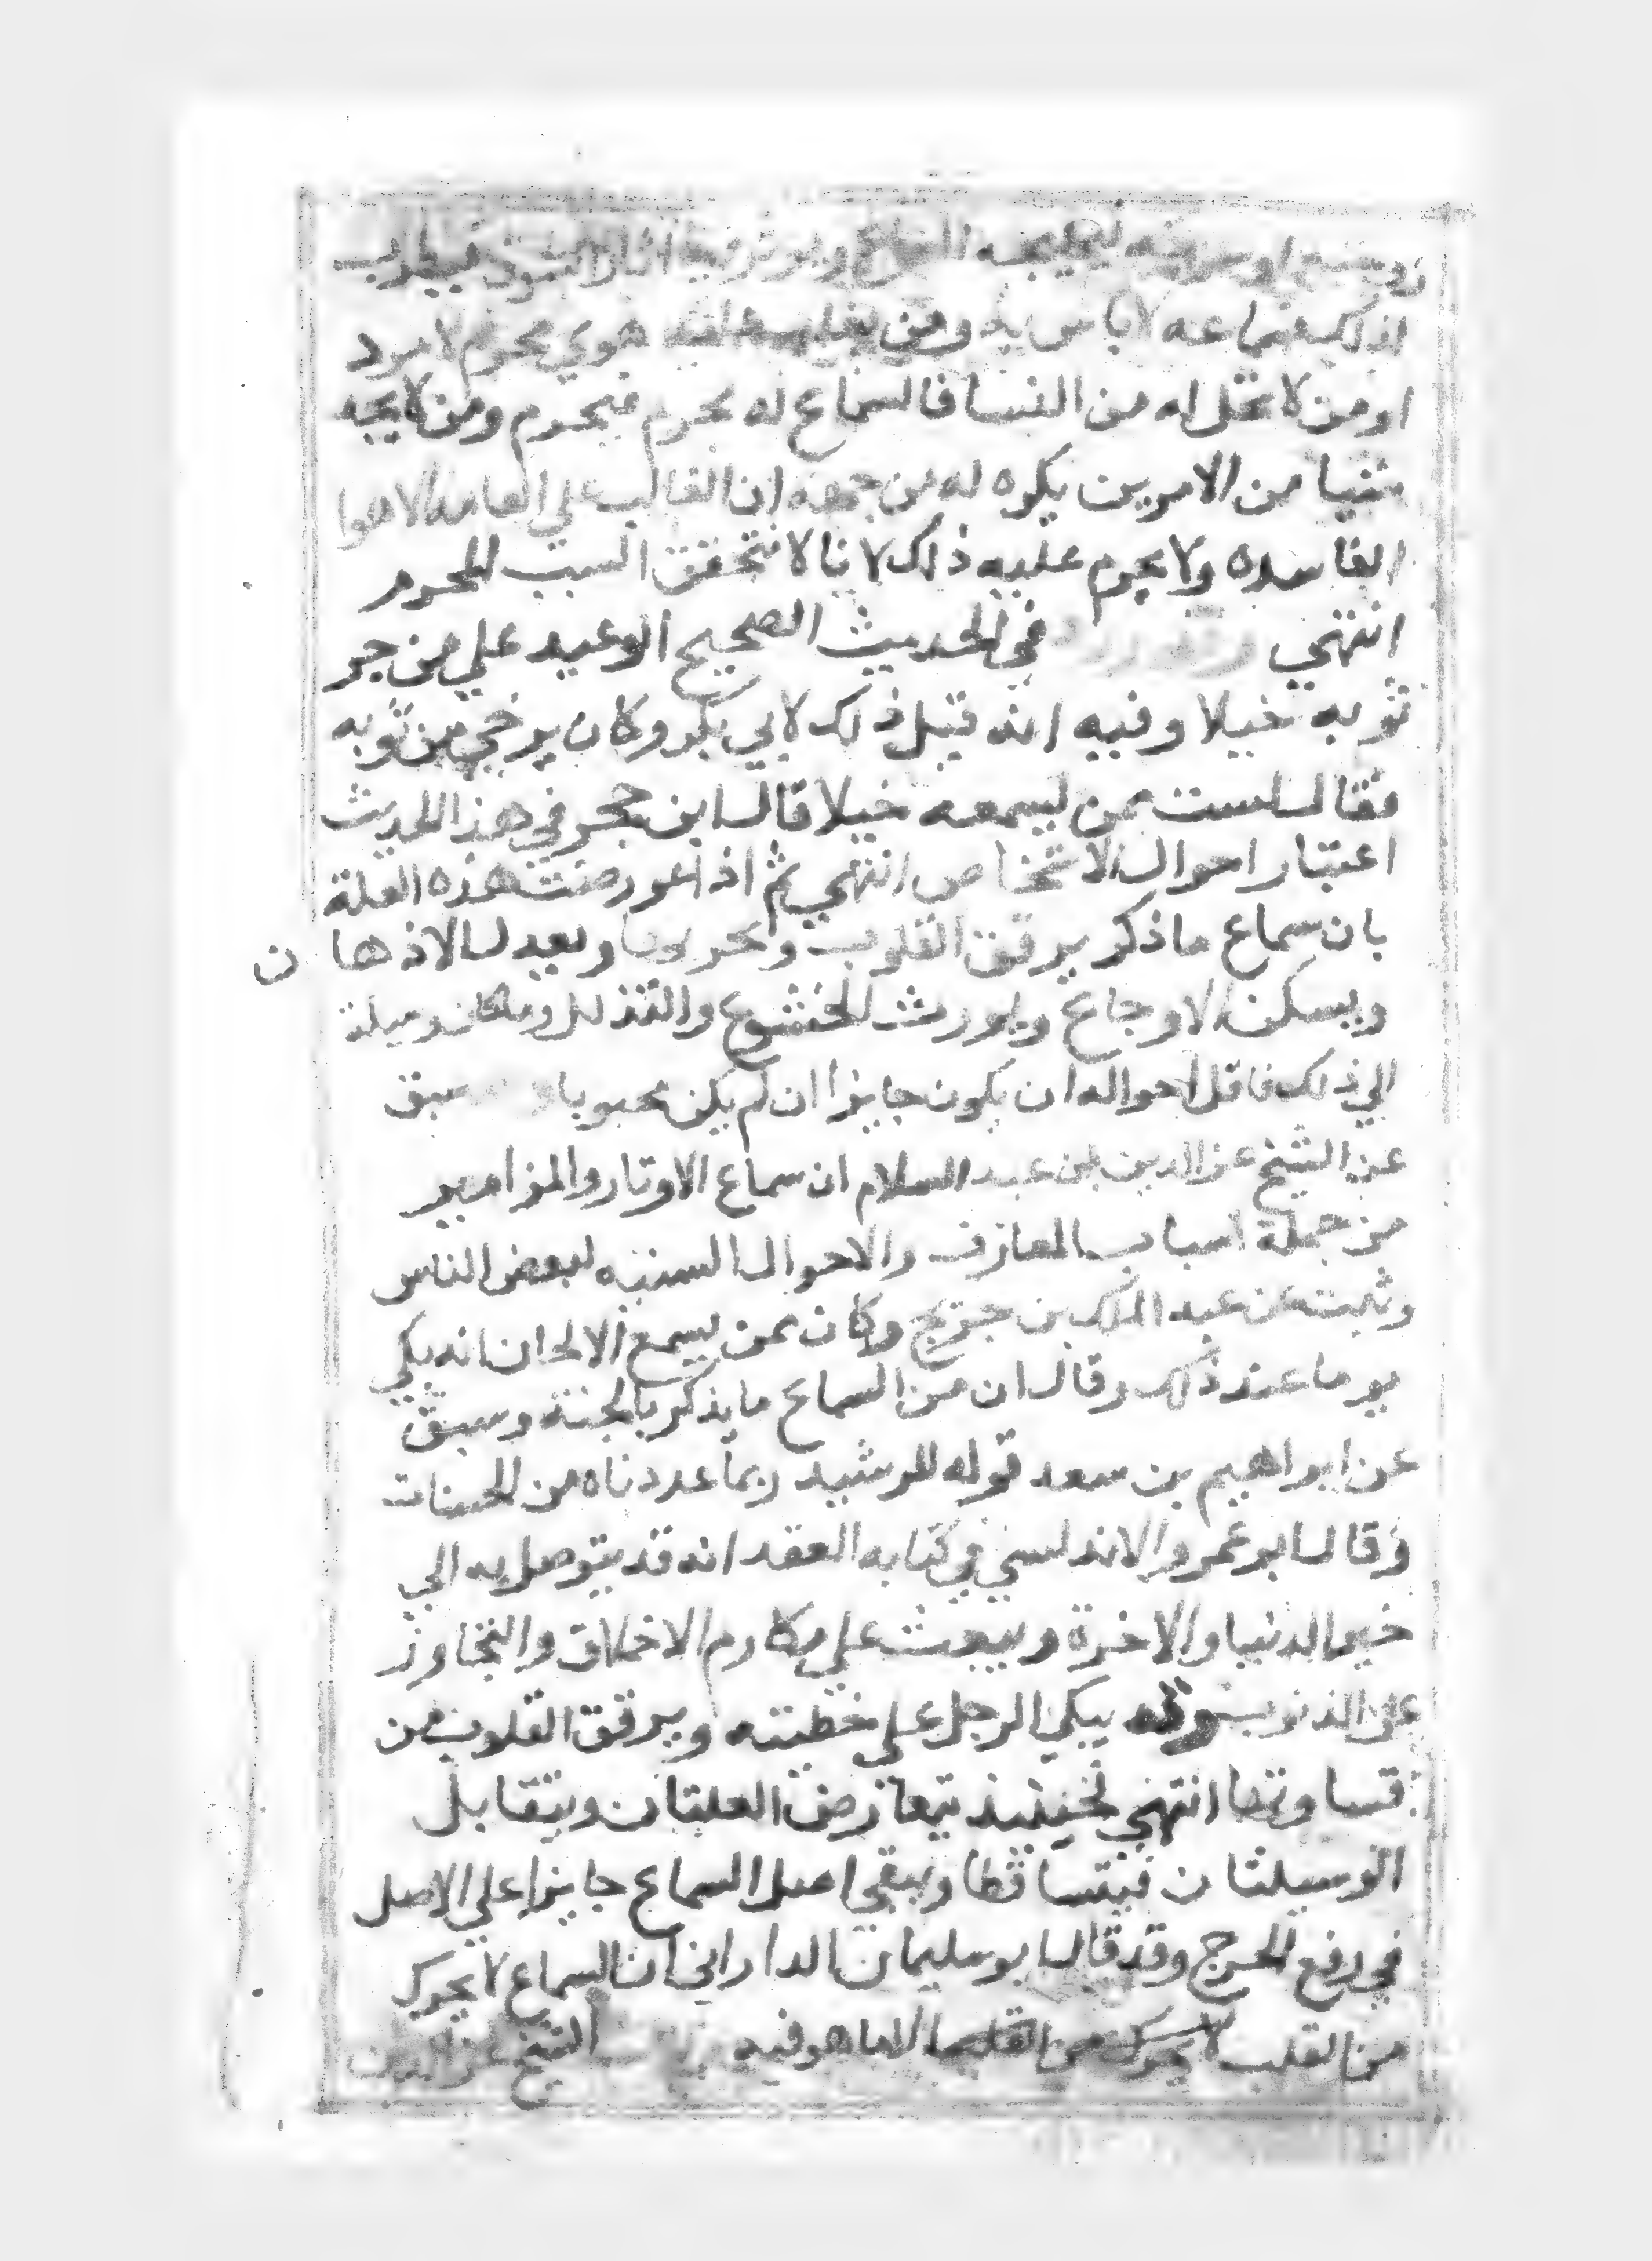 زوجته او سريته فيهيجه السماع ويوثر فيه اثار الشوق فيطرب
اذ ذلك فسماعه لا باس به ومن يغلب هوي محرم لامرد
او من لا تحل له من النسا فالسماع له محرم فيحرم ومن لا يجد
شيا من الامرين يكره له من جهة ان الغالب علي العامة الاهوا
الفاسده ولا يحرم عليه ذلك لانا لا نتحقق السبب المحرم
انتهي وقد ورد في الحديث الصحيح الوعيد علي من جر
ثوبه خيلا وفيه انه قيل ذلك لابي بكر وكان يرخي من ثوبه
فقال لست ممن يسمعه خيلا قال ابن حجر في هذا الحديث
اعتبار احوال الاشخاص انتهي ثم اذا عورضت هذه العلة
بان سماع ما ذكر يرقق القلوب ويحر بها ويعيد لـ الاذهان
ويسكن الاوجاع ويورث الخشوع والتذلل وما كان وسيلة
الي ذلك فاقل احواله ان يكون جايزا ان لم يكن محبوبا سبق
عن الشيخ عز الدين بن عبد السلام ان سماع الاوتار والمزامير
من جملة اسباب المعازف والاحوال السنيه لبعض الناس
وثبت عن عبد الملك بن جريج وكان ممن يسمع الالحان انه بكي
يوما عند ذلك وقال ان من السماع ما يذكر بالجنة وسبق
عن ابراهيم بن سعد قوله للرشيد ربما عددناه من الحسنات
وقال ابو عمرو الاندلسي في كتابه العقد انه قد يتوصل به الي
خير الدنيا والاخرة ويبعث علي مكارم الاخلاق والتجاوز
علي الذنوب وقد يبكي الرجل علي خطيته ويرقق القلوب من
قساوتها انتهي فحينيذ يتعارض العلتان ويتقابل
الوسيلتان فيتساقطا ويبقي اصل السماع جايزا علي الاصل
في رفع الحرج وقد قال ابو سليمان الداراني ان السماع لا يحرك
من القلب لا يحرك من القلب الا ما هو فيه الشيخ عز الدين